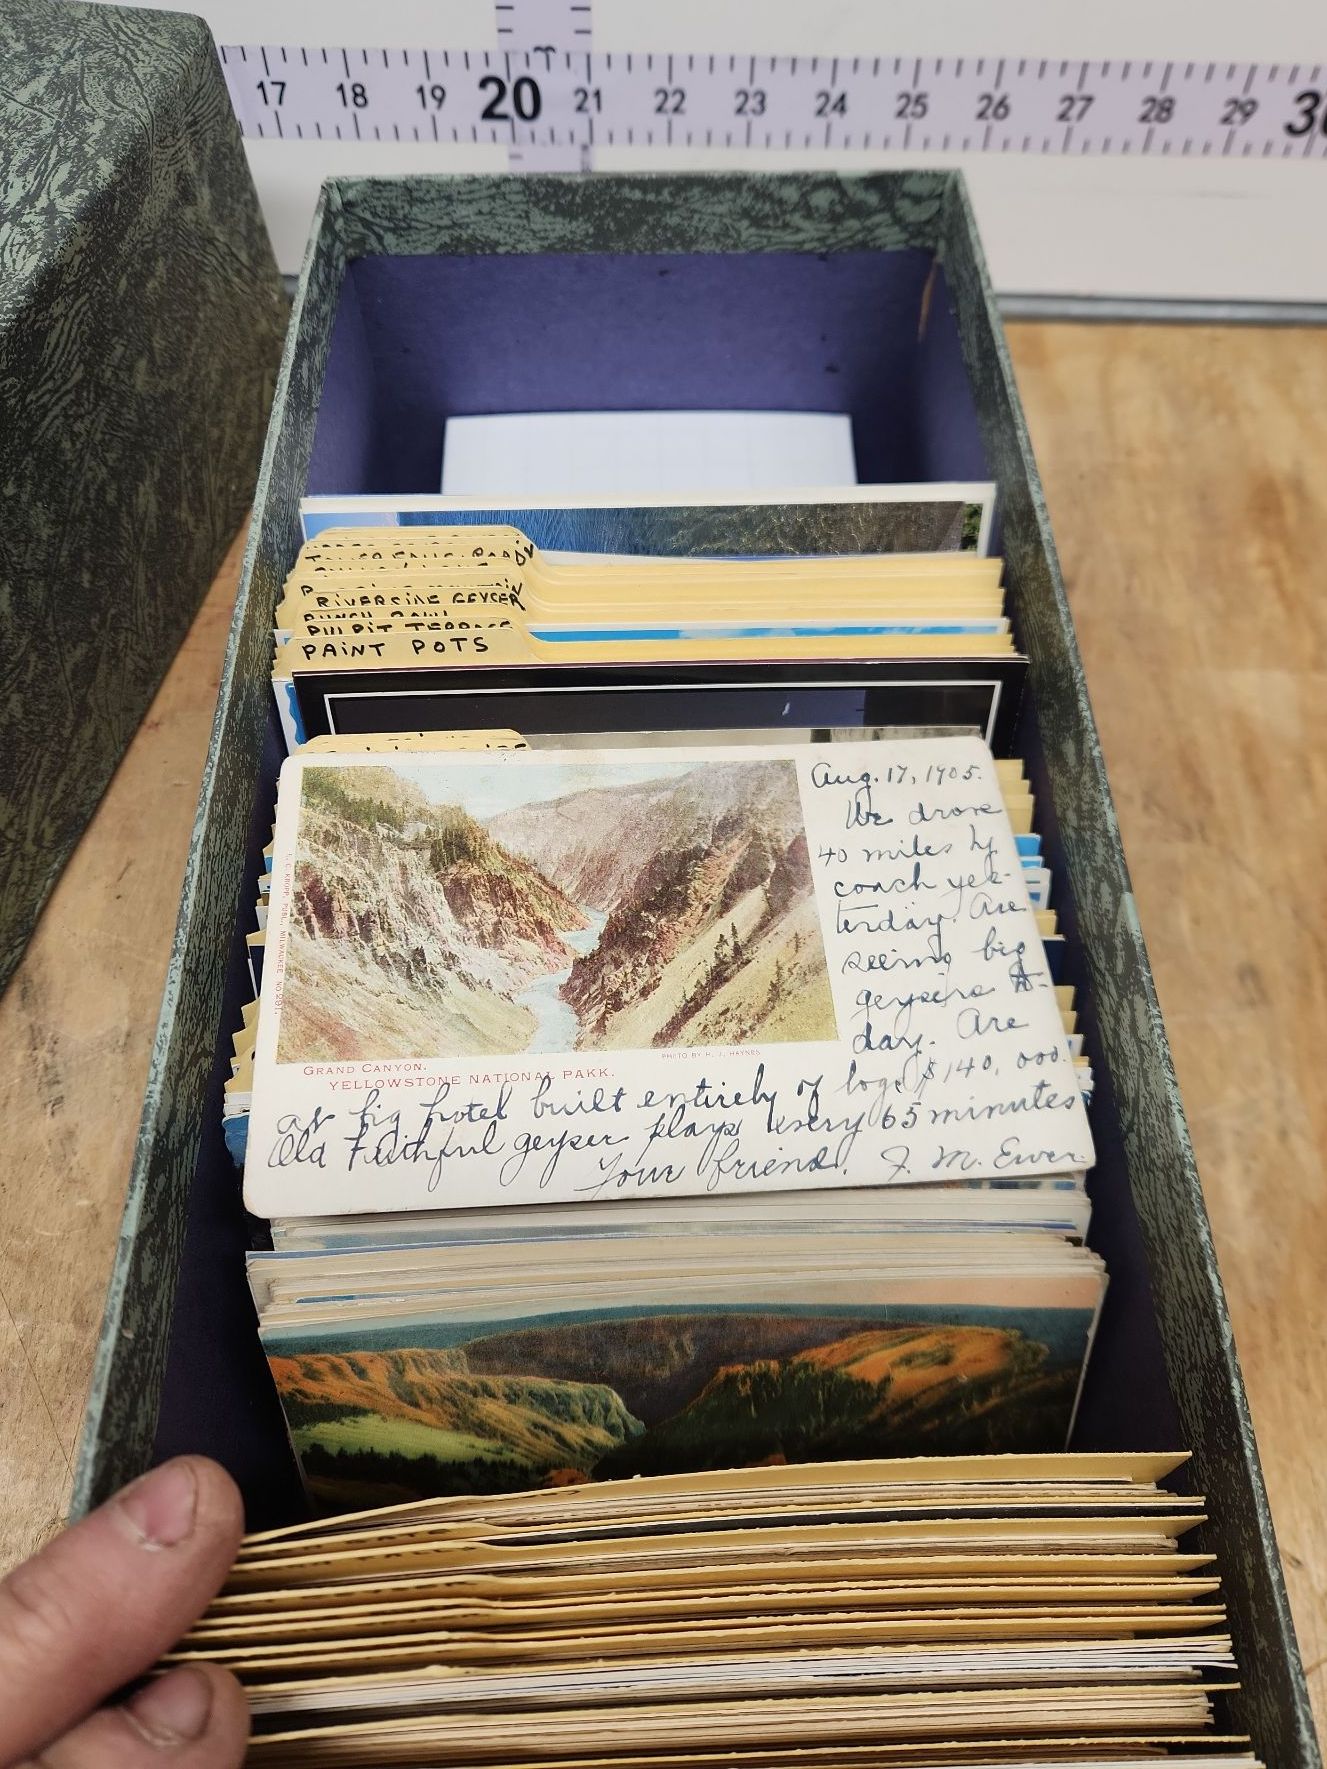 17 18 19 20 21 22 23 24 25 26 27 28 29 30
RIVERSIDE GEYSER
PULPIT TERRACE
PAINT POTS
Aug. 17, 1905.
We drove
40 miles by
coach yes-
terday. Are
seeing big
geysers to-
day. Are
at big hotel built entirely of logs $140,000.
Old Faithful geyser plays every 65 minutes
Your friend, J. M. Ewer.
E. C. KROPP, PUBL. MILWAUKEE NO
PHOTO BY H. J. HAYNES
GRAND CANYON.
YELLOWSTONE NATIONAL PAKK.